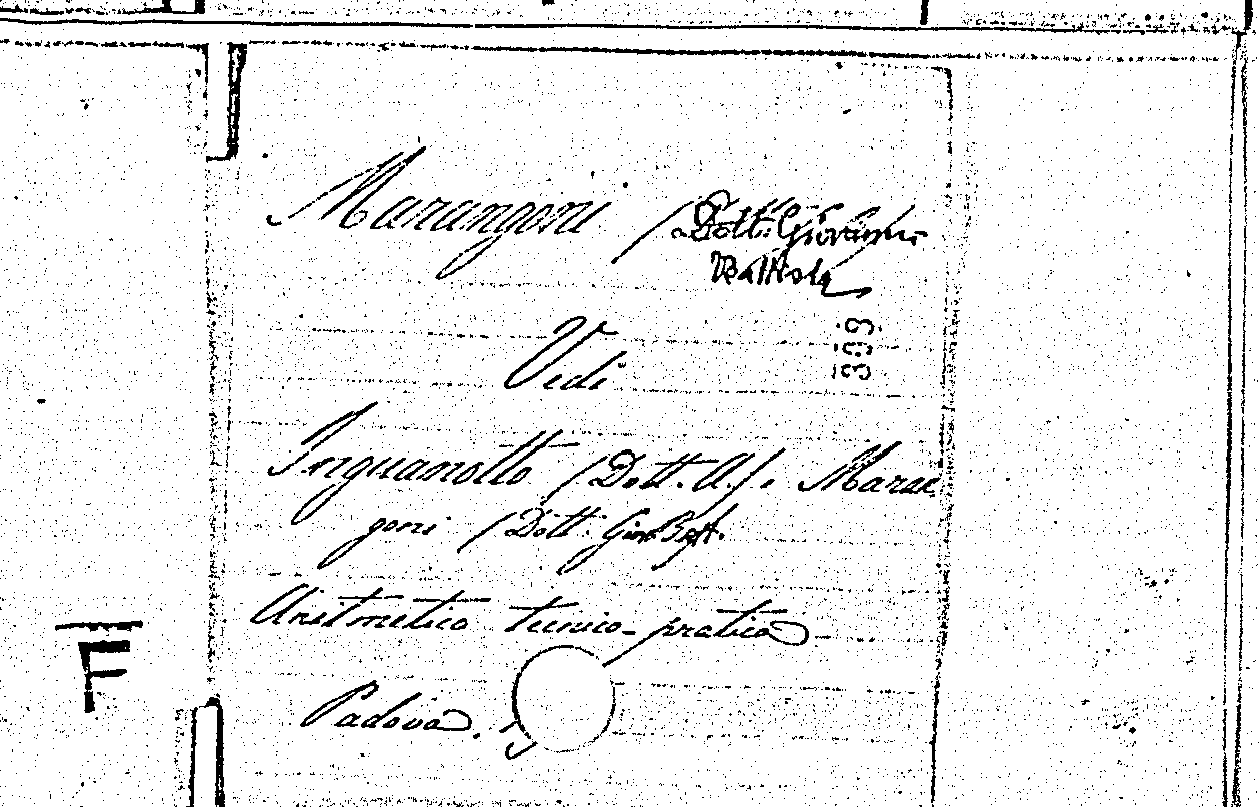 Marangoni (Dott. Giovanni
Battista
309
Vedi
Inguanotto (Dott. A.). Maran
goni (Dott. Giov. Batt.
Aritmetica tecnico-pratica
Padova.
F